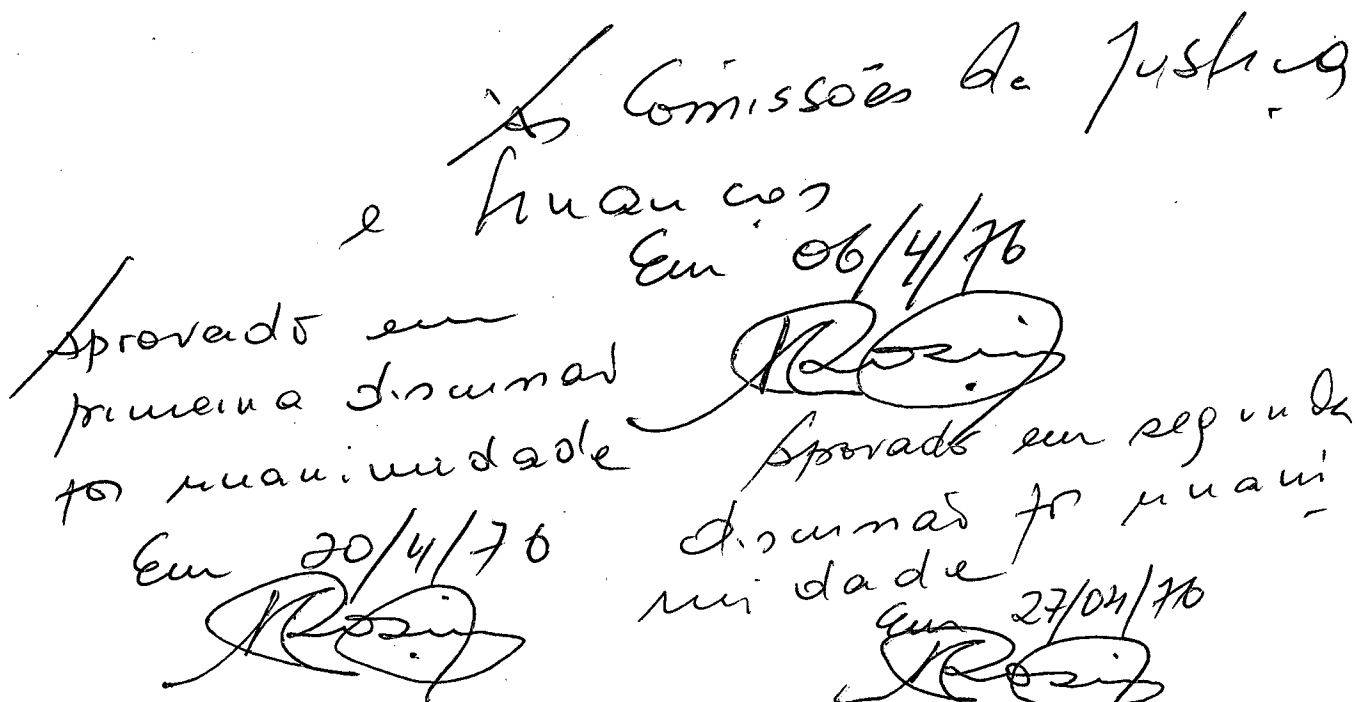 Às Comissões de Justiça
e finanças
Em 06/4/76
Aprovado em
primeira discussão
por unanimidade
Em 20/4/76
Aprovado em segunda
discussão por unani
midade
Em 27/04/76